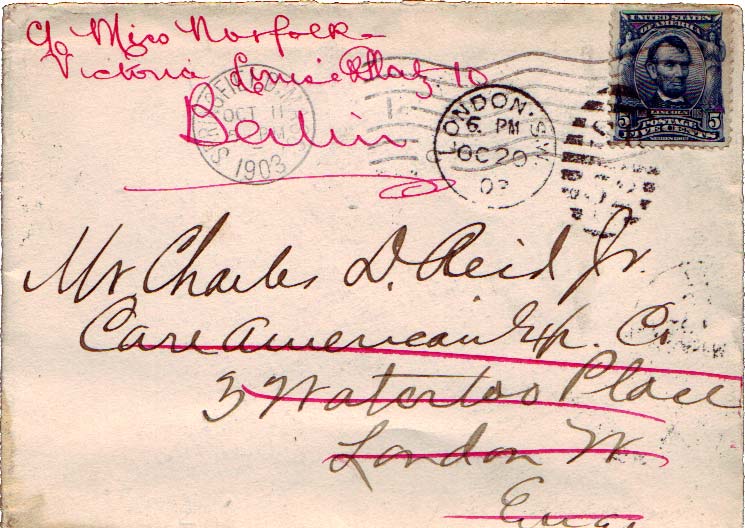 c/o Miss Norfolk-
Victoria Luise Platz 10
Berlin
OCT 11
1903
LONDON. S.W.
6. PM
OC 20
03
UNITED STATES
OF AMERICA
5 5
LINCOLN
POSTAGE
FIVE CENTS
SERIES 1902
Mr. Charles D. Reid Jr.
Care American Exp. Co.
3 Waterloo Place
London W.
Eng